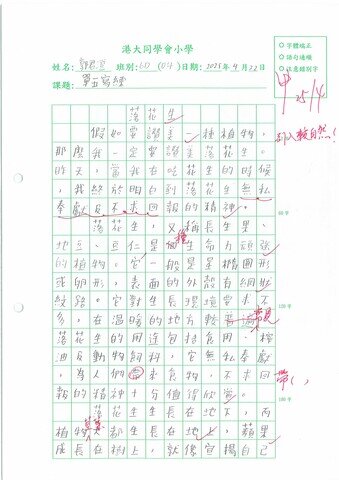 港大同學會小學
姓名：郭君宜 班別：6D (04) 日期：2025年4月22日
課題：單五寫練
字體端正
語句通順
注意錯別字
甲
25/4
引入較自然！
落花生
假如要讚美一種植物，
那麼我一定要讚美落花生。
昨天，當我在吃花生的時候
，我終於明白到落花生無私
奉獻及不求回報的精神。
落花生，又稱長生果、
地豆、豆仁是個生命力頑強
種
的植物。它一般是呈橢圓形
或卵形，表面的外殼有細小
紋路。它對生長環境要求不
多，在溫暖的地方較普遍。
常見
落花生的用途包括食用、榨
油及動物飼料，它無私奉獻
，為人們帶來食物，不求回
帶（，
報的精神十分值得欣賞。
落花生生長在地下，而
植物大都生長在地上，蘋果
成長在樹上，就像宣揚自己
80字
120字
180字